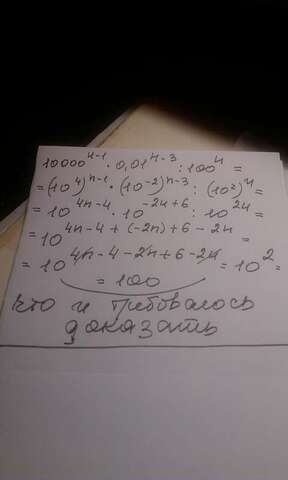 10000ⁿ⁻¹ · 0,01ⁿ⁻³ : 100ⁿ =
= (10⁴)ⁿ⁻¹ · (10⁻²)ⁿ⁻³ : (10²)ⁿ =
= 10⁴ⁿ⁻⁴ · 10⁻²ⁿ⁺⁶ : 10²ⁿ =
= 10⁴ⁿ⁻⁴⁺⁽⁻²ⁿ⁾⁺⁶⁻²ⁿ =
= 10⁴ⁿ⁻⁴⁻²ⁿ⁺⁶⁻²ⁿ = 10² =
= 100
что и требовалось
доказать